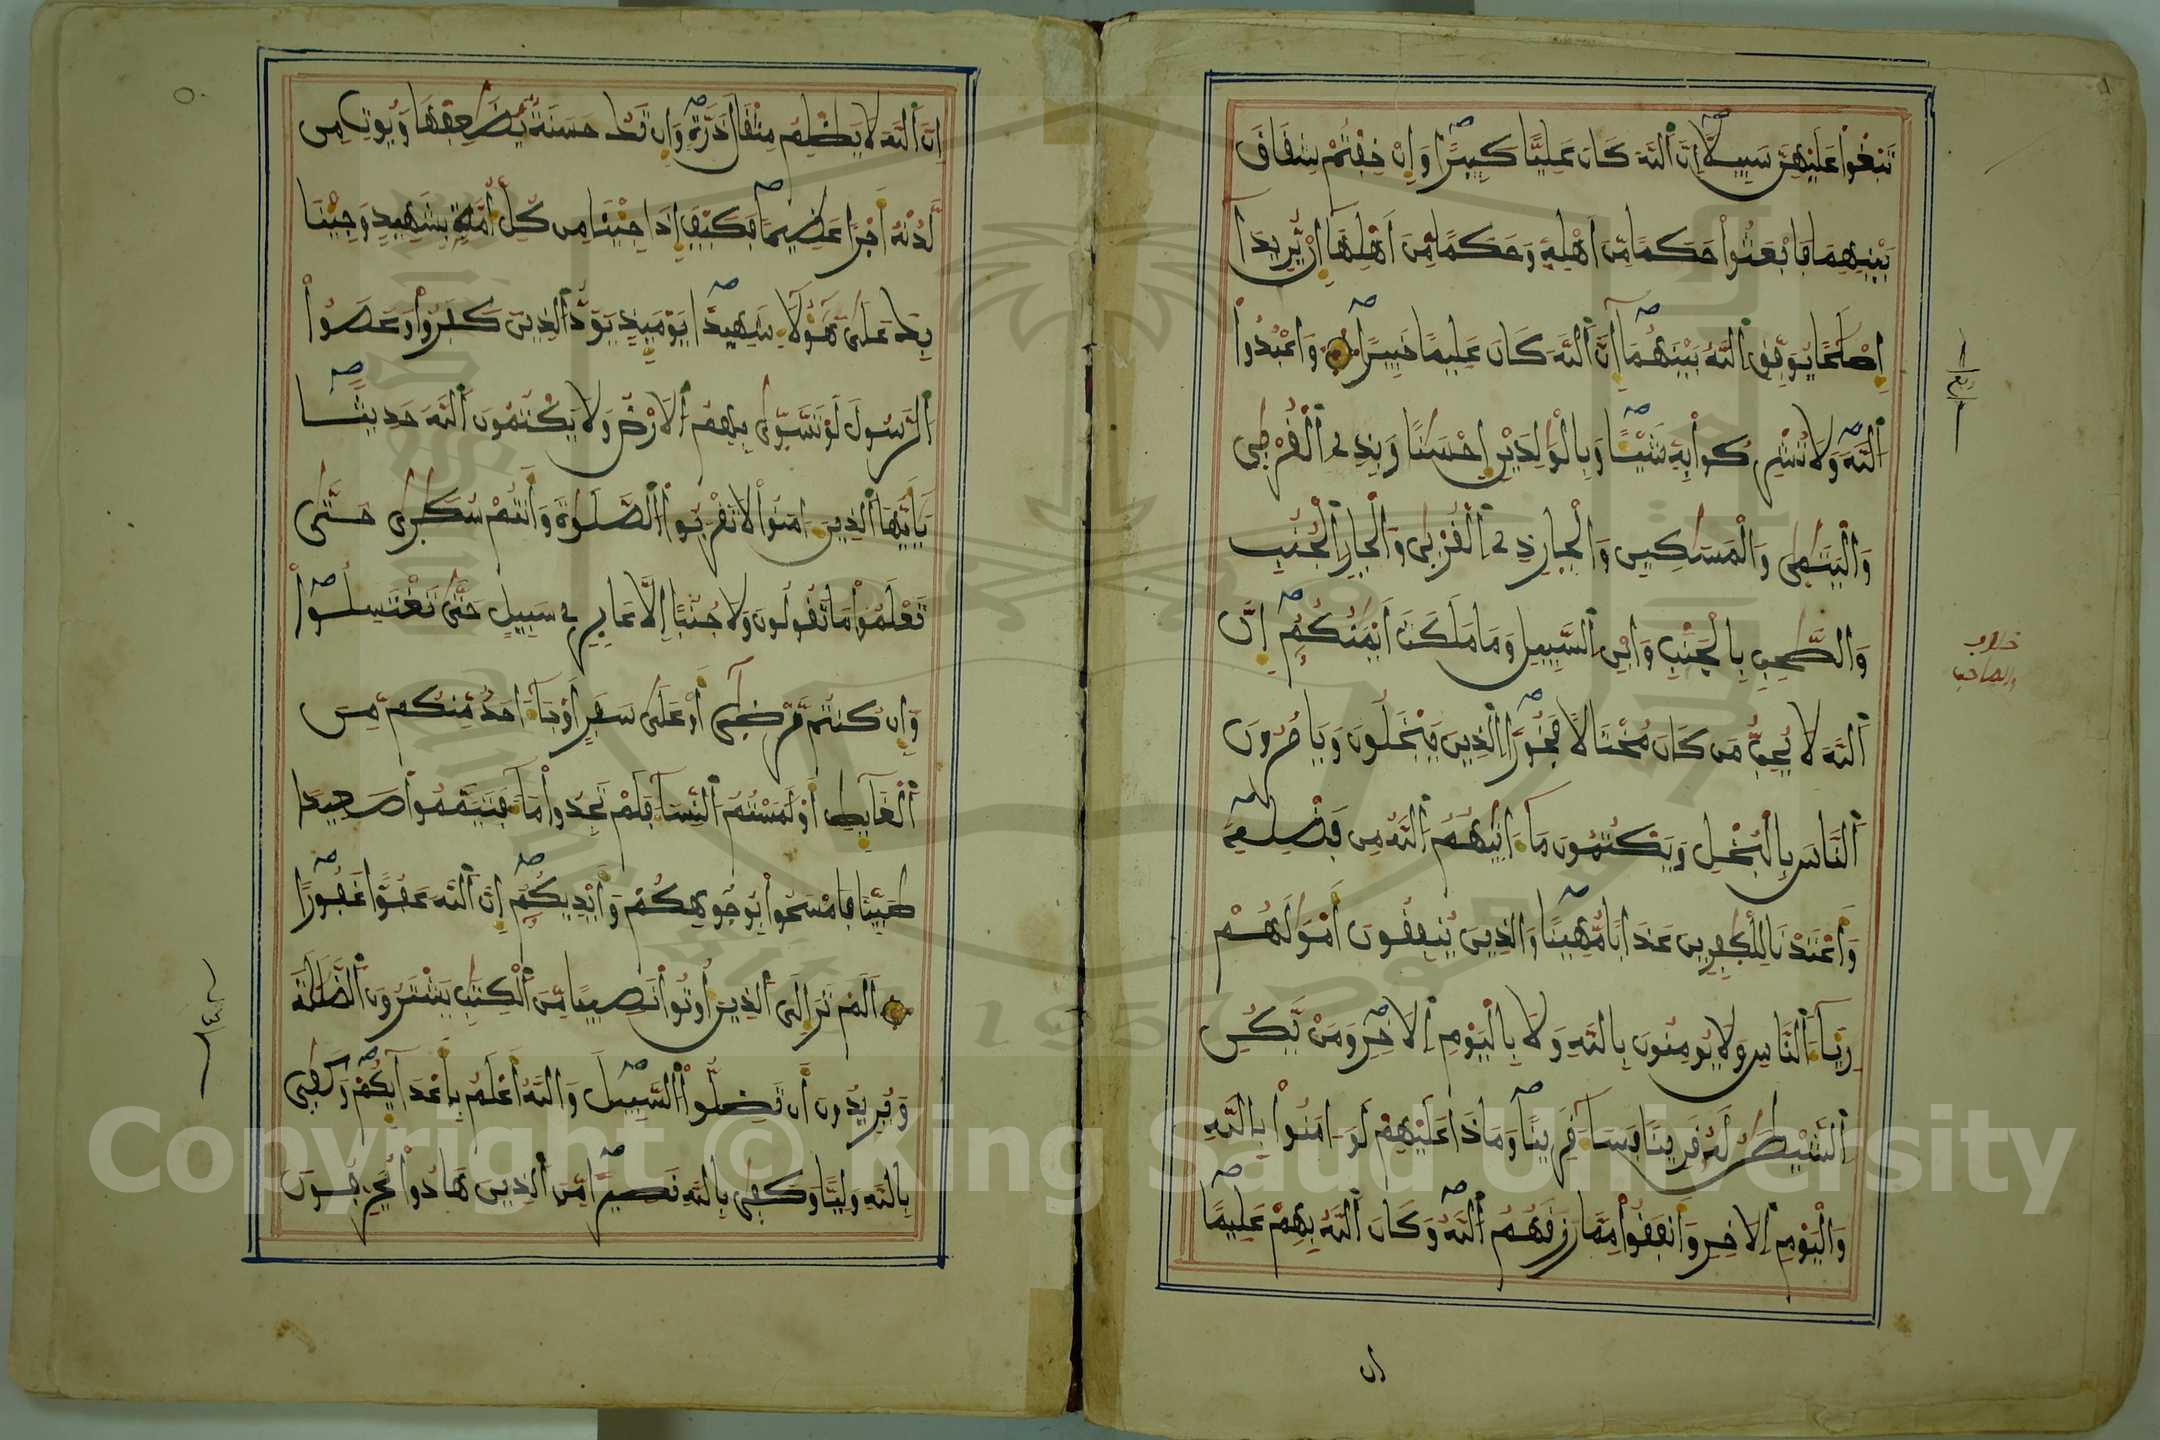 تَبْغُواْ عَلَيْهِنَّ سَبِيلًا اِنَّ اَللَّهَ كَانَ عَلِيًّا كَبِيرًا وَإِنْ خِفْتُمْ شِقَاقَ
بَيْنِهِمَا فَابْعَثُواْ حَكَمًا مِّنَ اَهْلِهِ وَحَكَمًا مِّنَ اَهْلِهَا إِنْ يُّرِيدَا
إِصْلَحًا يُوَفِّقِ اِللَّهُ بَيْنَهُمَا إِنَّ اَللَّهَ كَانَ عَلِيمًا خَبِيرًا وَاعْبُدُواْ
اُللَّهَ وَلَا تُشْرِكُواْ بِهِ شَيْـًٔا وَبِالْوَالِدَيْنِ إِحْسَنًا وَبِذِے اِلْقُرْبَى
وَالْيَتَمَى وَالْمَسَكِينِ وَالْجِارِ ذِے اِلْقُرْبَى وَالْجِارِ اِلْجُنُبِ
وَالصَّحِبِ بِالْجَنْبِ وَابْنِ اِلسَّبِيلِ وَمَا مَلَكَتَ اَيْمَنُكُمْ إِنَّ
اَللَّهَ لَا يُحِبُّ مَن كَانَ مُخْتَالًا فَخُورًا اِلذِينَ يَبْخَلُونَ وَيَامُرُونَ
اَلنَّاسَ بِالْبُخْلِ وَيَكْتُمُونَ مَا ءَاتَيهُمُ اُللَّهُ مِن فَضْلِهِ
وَأَعْتَدْنَا لِلْكَفِرِينَ عَذَابًا مُّهِينًا وَالذِينَ يُنفِقُونَ أَمْوَلَهُمْ
رِيَاءَ اَلنَّاسِ وَلَا يُومِنُونَ بِاللَّهِ وَلَا بِالْيَوْمِ اِلَاخِرِ وَمَنْ يَّكُنِ
اِلشَّيْطَنُ لَهُ قَرِينًا فَسَاءَ قَرِينًا وَمَاذَا عَلَيْهِمْ لَوَ اٰمَنُواْ بِاللَّهِ
وَالْيَوْمِ اِلَاخِرِ وَأَنفَقُواْ مِمَّا رَزَقَهُمُ اُللَّهُ وَكَانَ اَللَّهُ بِهِمْ عَلِيمًا
ان
ربع
والصاحب
اِنَّ اَللَّهَ لَا يَظْلِمُ مِثْقَالَ ذَرَّةٍ وَإِن تَكُ حَسَنَةٌ يُضَعِفْهَا وَيُوتِ مِن
لَّدُنْهُ أَجْرًا عَظِيمًا فَكَيْفَ إِذَا جِيْنَا مِن كُلِّ أُمَّةٍ بِشَهِيدٍ وَجِيْنَا
بِكَ عَلَى هَؤُلَاءِ شَهِيدًا يَوْمَئِذٍ يَوَدُّ اُلذِينَ كَفَرُواْ وَعَصَوُاْ
اُلرَّسُولَ لَوْ تَسَّوَّى بِهِمُ اُلَارْضُ وَلَا يَكْتُمُونَ اَللَّهَ حَدِيثًا
يَأَيُّهَا اَلذِينَ ءَامَنُواْ لَا تَقْرَبُواْ اُلصَّلَوةَ وَأَنتُمْ سُكَرَى حَتَّى
تَعْلَمُواْ مَا تَقُولُونَ وَلَا جُنُبًا إِلَّا عَابِرِے سَبِيلٍ حَتَّى تَغْتَسِلُواْ
وَإِن كُنتُم مَّرْضَى أَوْ عَلَى سَفَرٍ اَوْ جَاءَ احَدٌ مِّنكُم مِّنَ
اَلْغَائِطِ أَوْ لَمَسْتُمُ اُلنِّسَاءَ فَلَمْ تَجِدُواْ مَاءً فَتَيَمَّمُواْ صَعِيدًا
طَيِّبًا فَامْسَحُواْ بِوُجُوهِكُمْ وَأَيْدِيكُمْ إِنَّ اَللَّهَ كَانَ عَفُوًّا غَفُورًا
اَلَمْ تَرَ إِلَى اَلذِينَ أُوتُواْ نَصِيبًا مِّنَ اَلْكِتَبِ يَشْتَرُونَ اَلضَّلَلَةَ
وَيُرِيدُونَ أَن تَضِلُّواْ اُلسَّبِيلَ وَاللَّهُ أَعْلَمُ بِأَعْدَائِكُمْ وَكَفَى
بِاللَّهِ وَلِيًّا وَكَفَى بِاللَّهِ نَصِيرًا مِّنَ اَلذِينَ هَادُواْ يُحَرِّفُونَ
Copyright © King Saud University
1957